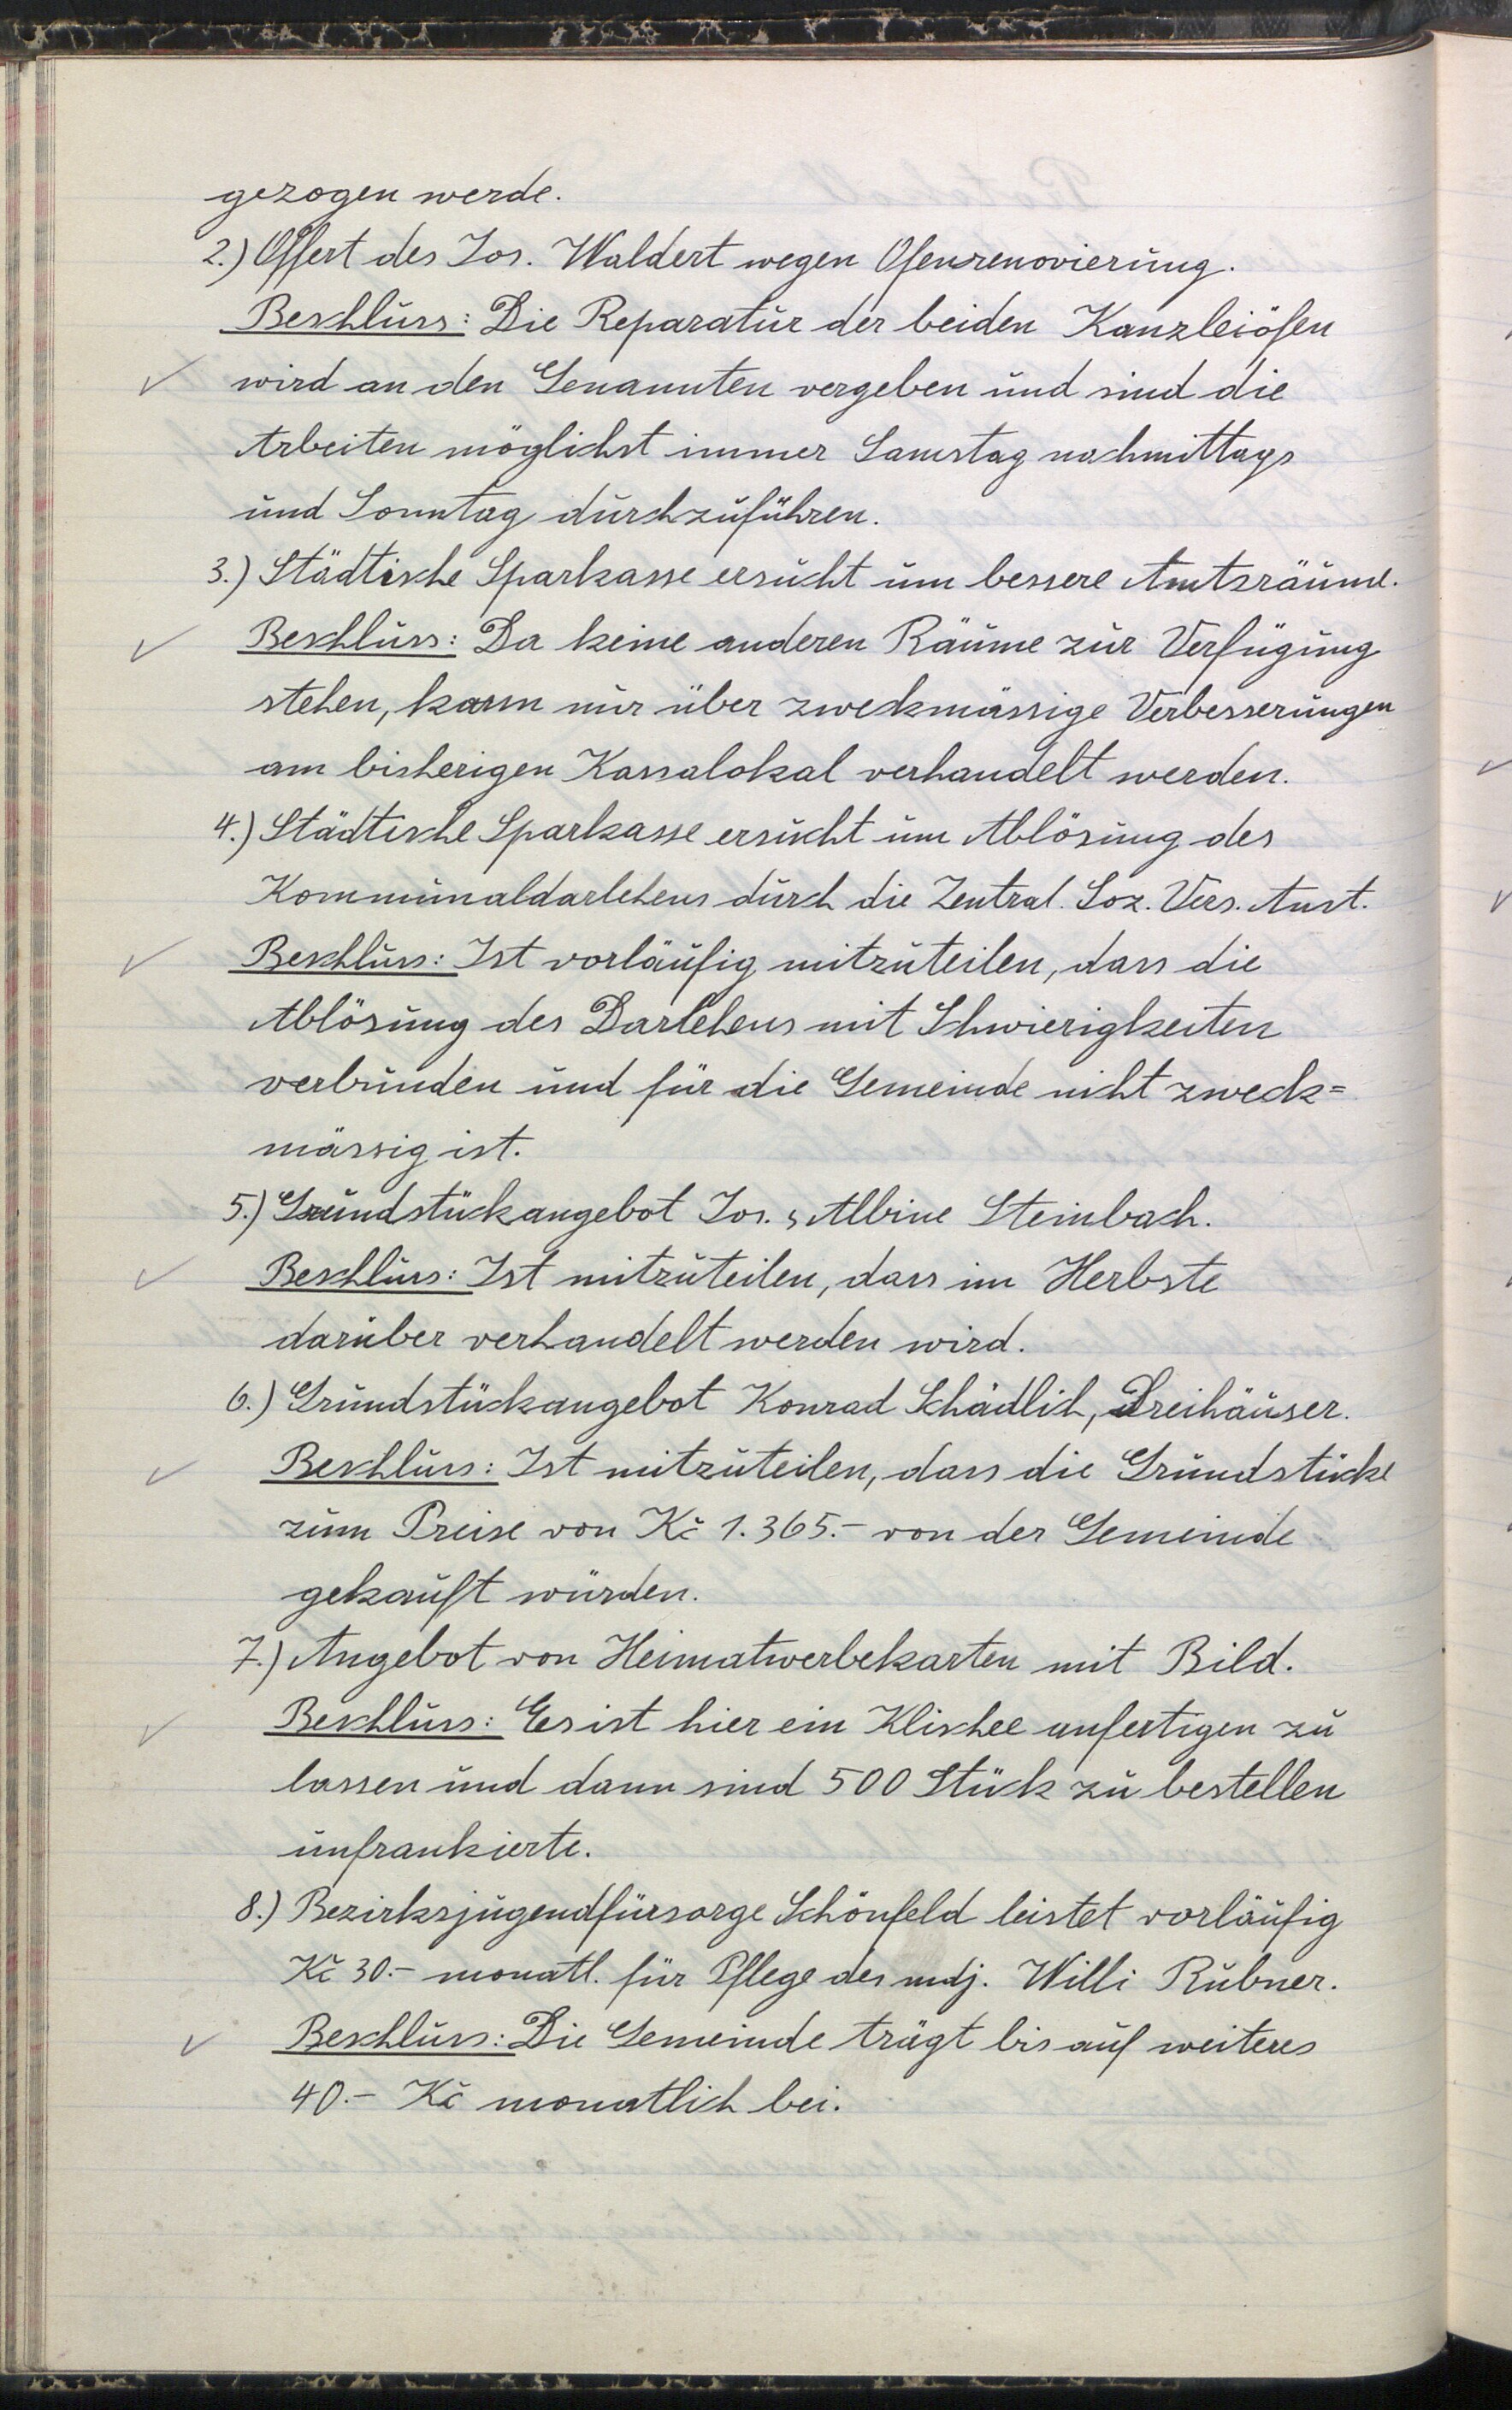 gezogen werde.
2.) Offert des Jos. Waldert wegen Ofenrenovierung.
Beschluss: Die Reparatur der beiden Kanzleiöfen
wird an den Genannten vergeben und sind die
Arbeiten möglichst immer Samstag nachmittags
und Sonntag durchzuführen.
3.) Städtische Sparkasse ersucht um bessere Amtsräume.
Beschluss: Da keine anderen Räume zur Verfügung
stehen, kann nur über zweckmässige Verbesserungen
am bisherigen Kassalokal verhandelt werden.
4.) Städtische Sparkasse ersucht um Ablösung des
Kommunaldarlehens durch die Zentral. Soz. Vers. Anst.
Beschluss: Ist vorläufig mitzuteilen, dass die
Ablösung des Darlehens mit Schwierigkeiten
verbunden und für die Gemeinde nicht zweck=
mässig ist.
5.) Grundstückangebot Jos. & Albine Steinbach.
Beschluss: Ist mitzuteilen, dass im Herbste
darüber verhandelt werden wird.
6.) Grundstückangebot Konrad Schädlich, Dreihäuser.
Beschluss: Ist mitzuteilen, dass die Grundstücke
zum Preise von Kč 1.365.- von der Gemeinde
gekauft würden.
7.) Angebot von Heimatwerbekarten mit Bild.
Beschluss: Es ist hier ein Klischee anfertigen zu
lassen und dann sind 500 Stück zu bestellen
unfrankierte.
8.) Bezirksjugendfürsorge Schönfeld leistet vorläufig
Kč 30.- monatl. für Pflege des mdj. Willi Rubner.
Beschluss: Die Gemeinde trägt bis auf weiteres
40.- Kč monatlich bei.